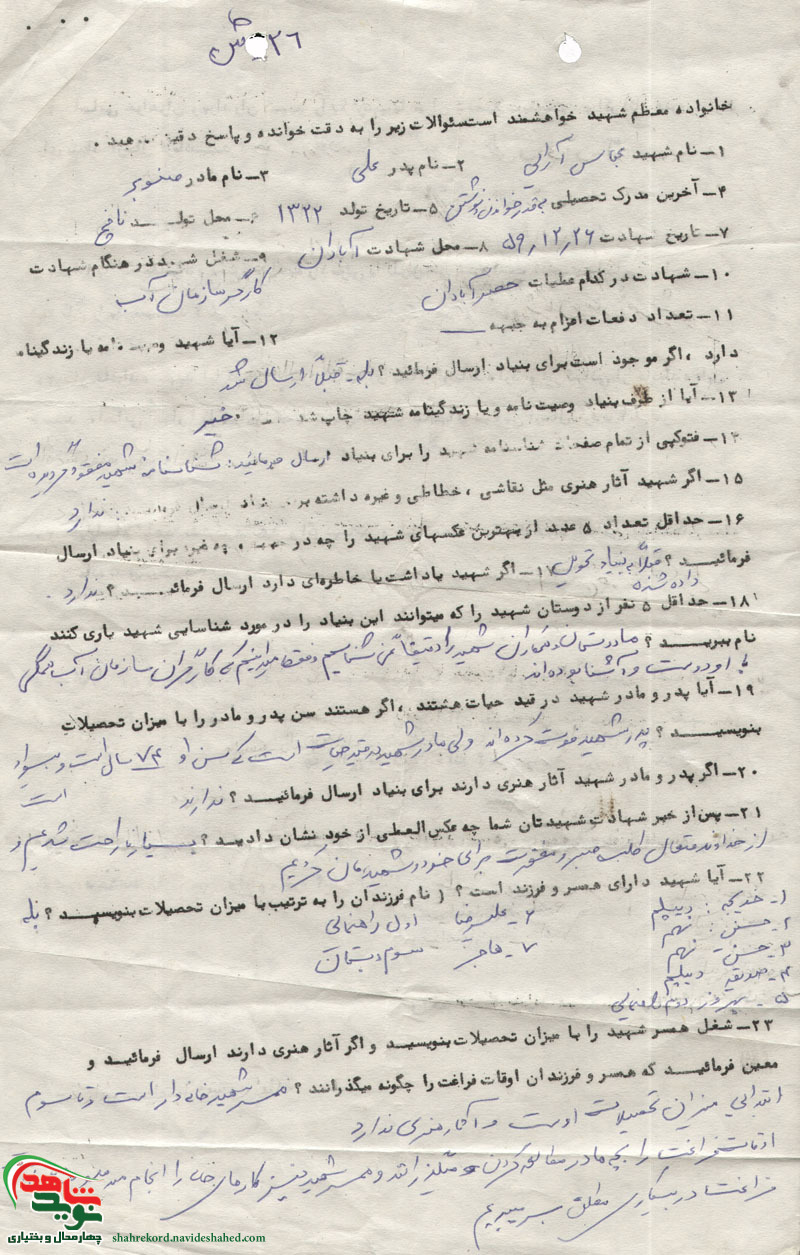 ۳۶
خانواده معظم شهید خواهشمند است سئوالات زیر را به دقت خوانده و پاسخ دقیق ... هید .
۱ـ نام شهید عباس آرائی ۲ـ نام پدر علی ۳ـ نام مادر صنوبر
۴ـ آخرین مدرک تحصیلی بقدر خواندن و نوشتن ۵ـ تاریخ تولد ۱۳۲۲ ۶ـ محل تولد نافچ
۷ـ تاریخ شهادت ۵۹,۱۲,۲۶ ۸ـ محل شهادت آبادان ۹ـ شغل شهید در هنگام شهادت
کارگر سازمان آب
۱۰ـ شهادت در کدام عملیات حصر آبادان
۱۱ـ تعداد دفعات اعزام به جبهه ـــ
۱۲ـ آیا شهید وصیت نامه یا زندگینامه
دارد ، اگر موجود است برای بنیاد ارسال فرمائید ؟ بله ـ قبلاً ارسال شد
۱۳ـ آیا از طرف بنیاد وصیت نامه و یا زندگینامه شهید چاپ شد خیر
۱۴ـ فتوکپی از تمام صفحات شناسنامه شهید را برای بنیاد ارسال فرمائید : شناسنامه شهید مفقود گردیده است
۱۵ـ اگر شهید آثار هنری مثل نقاشی ، خطاطی و غیره داشته ندارد
۱۶ـ حداقل تعداد ۵ عدد از بهترین عکسهای شهید را چه در جبهه و چه غیره برای بنیاد ارسال
فرمائیـد ؟ قبلاً به بنیاد تحویل داده شده ۱۷ـ اگر شهید یاداشت یا خاطره‌ای دارد ارسال فرمائیـد ؟ ندارد
۱۸ـ حداقل ۵ نفر از دوستان شهید را که میتوانند این بنیاد را در مورد شناسایی شهید یاری کنند
نام ببریـد ؟ ما دوستان و همکاران شهید را دقیقاً نمی شناسیم و فقط میدانیم که کارگران سازمان آب همگی
با او دوست و آشنا بوده اند
۱۹ـ آیا پدر و مادر شهید در قید حیات هشتند ، اگر هستند سن پدر و مادر را با میزان تحصیلات
بنویسیـد ؟ پدر شهید فوت کرده اند ولی مادر شهید در قید حیات است که سن او ۷۴ سال است و بیسواد
است
۲۰ـ اگر پدر و مادر شهید آثار هنری دارند برای بنیاد ارسال فرمائیـد ؟ ندارند
۲۱ـ پس از خبر شهادت شهیدتان شما چه عکس العملی از خود نشان دادیـد ؟ بسیار ناراحت شدیم و
از خداوند متعال طلب صبر و مغفرت برای خود و شهیدمان کردیم
۲۲ـ آیا شهید دارای همسر و فرزند است ؟ ( نام فرزندان را به ترتیب با میزان تحصیلات بنویسیـد ؟ بله
۱ـ خدیجه : دیپلم ۶ـ علیرضا اول راهنمائی
۲ـ حسین : نهم ۷ـ هاجر ـ سوم دبستان
۳ـ حسن ـ نهم
۴ـ صدیقه دیپلم
۵ـ بهروز . دوم راهنمایی
۲۳ـ شغل همسر شهید را با میزان تحصیلات بنویسیـد و اگر آثار هنری دارند ارسال فرمائیـد و
معین فرمائیـد که همسر و فرزندان اوقات فراغت را چگونه میگذرانند ؟ همسر شهید خانه‌دار است و تا سوم
ابتدایی میزان تحصیلات اوست و آثار هنری ندارد
اوقات فراغت را بچه ها در مطالعه کردن میگذرانند و همسر شهید نیز کارهای خانه را انجام
فراغت در بیکاری مطلق بسر میبریم
شاهد
نوید
چهارمحال و بختیاری
shahrekord.navideshahed.com